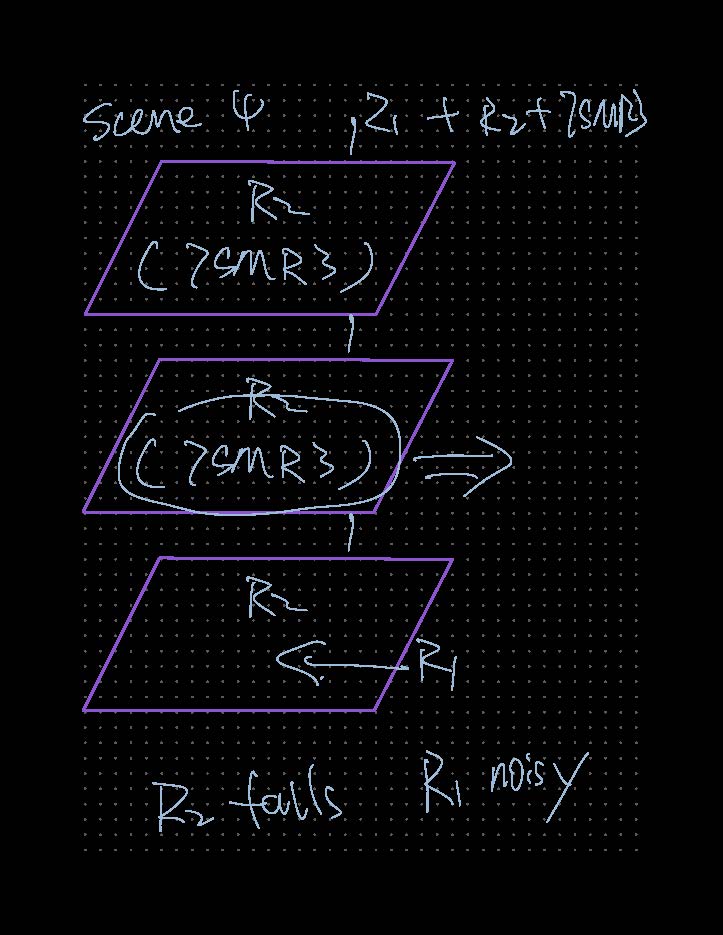 Scene 4 , Z1 + R2 + 7SMR3
R2
(7SMR3)
R2
(7SMR3)
R2
R1
R2 falls R1 noisy